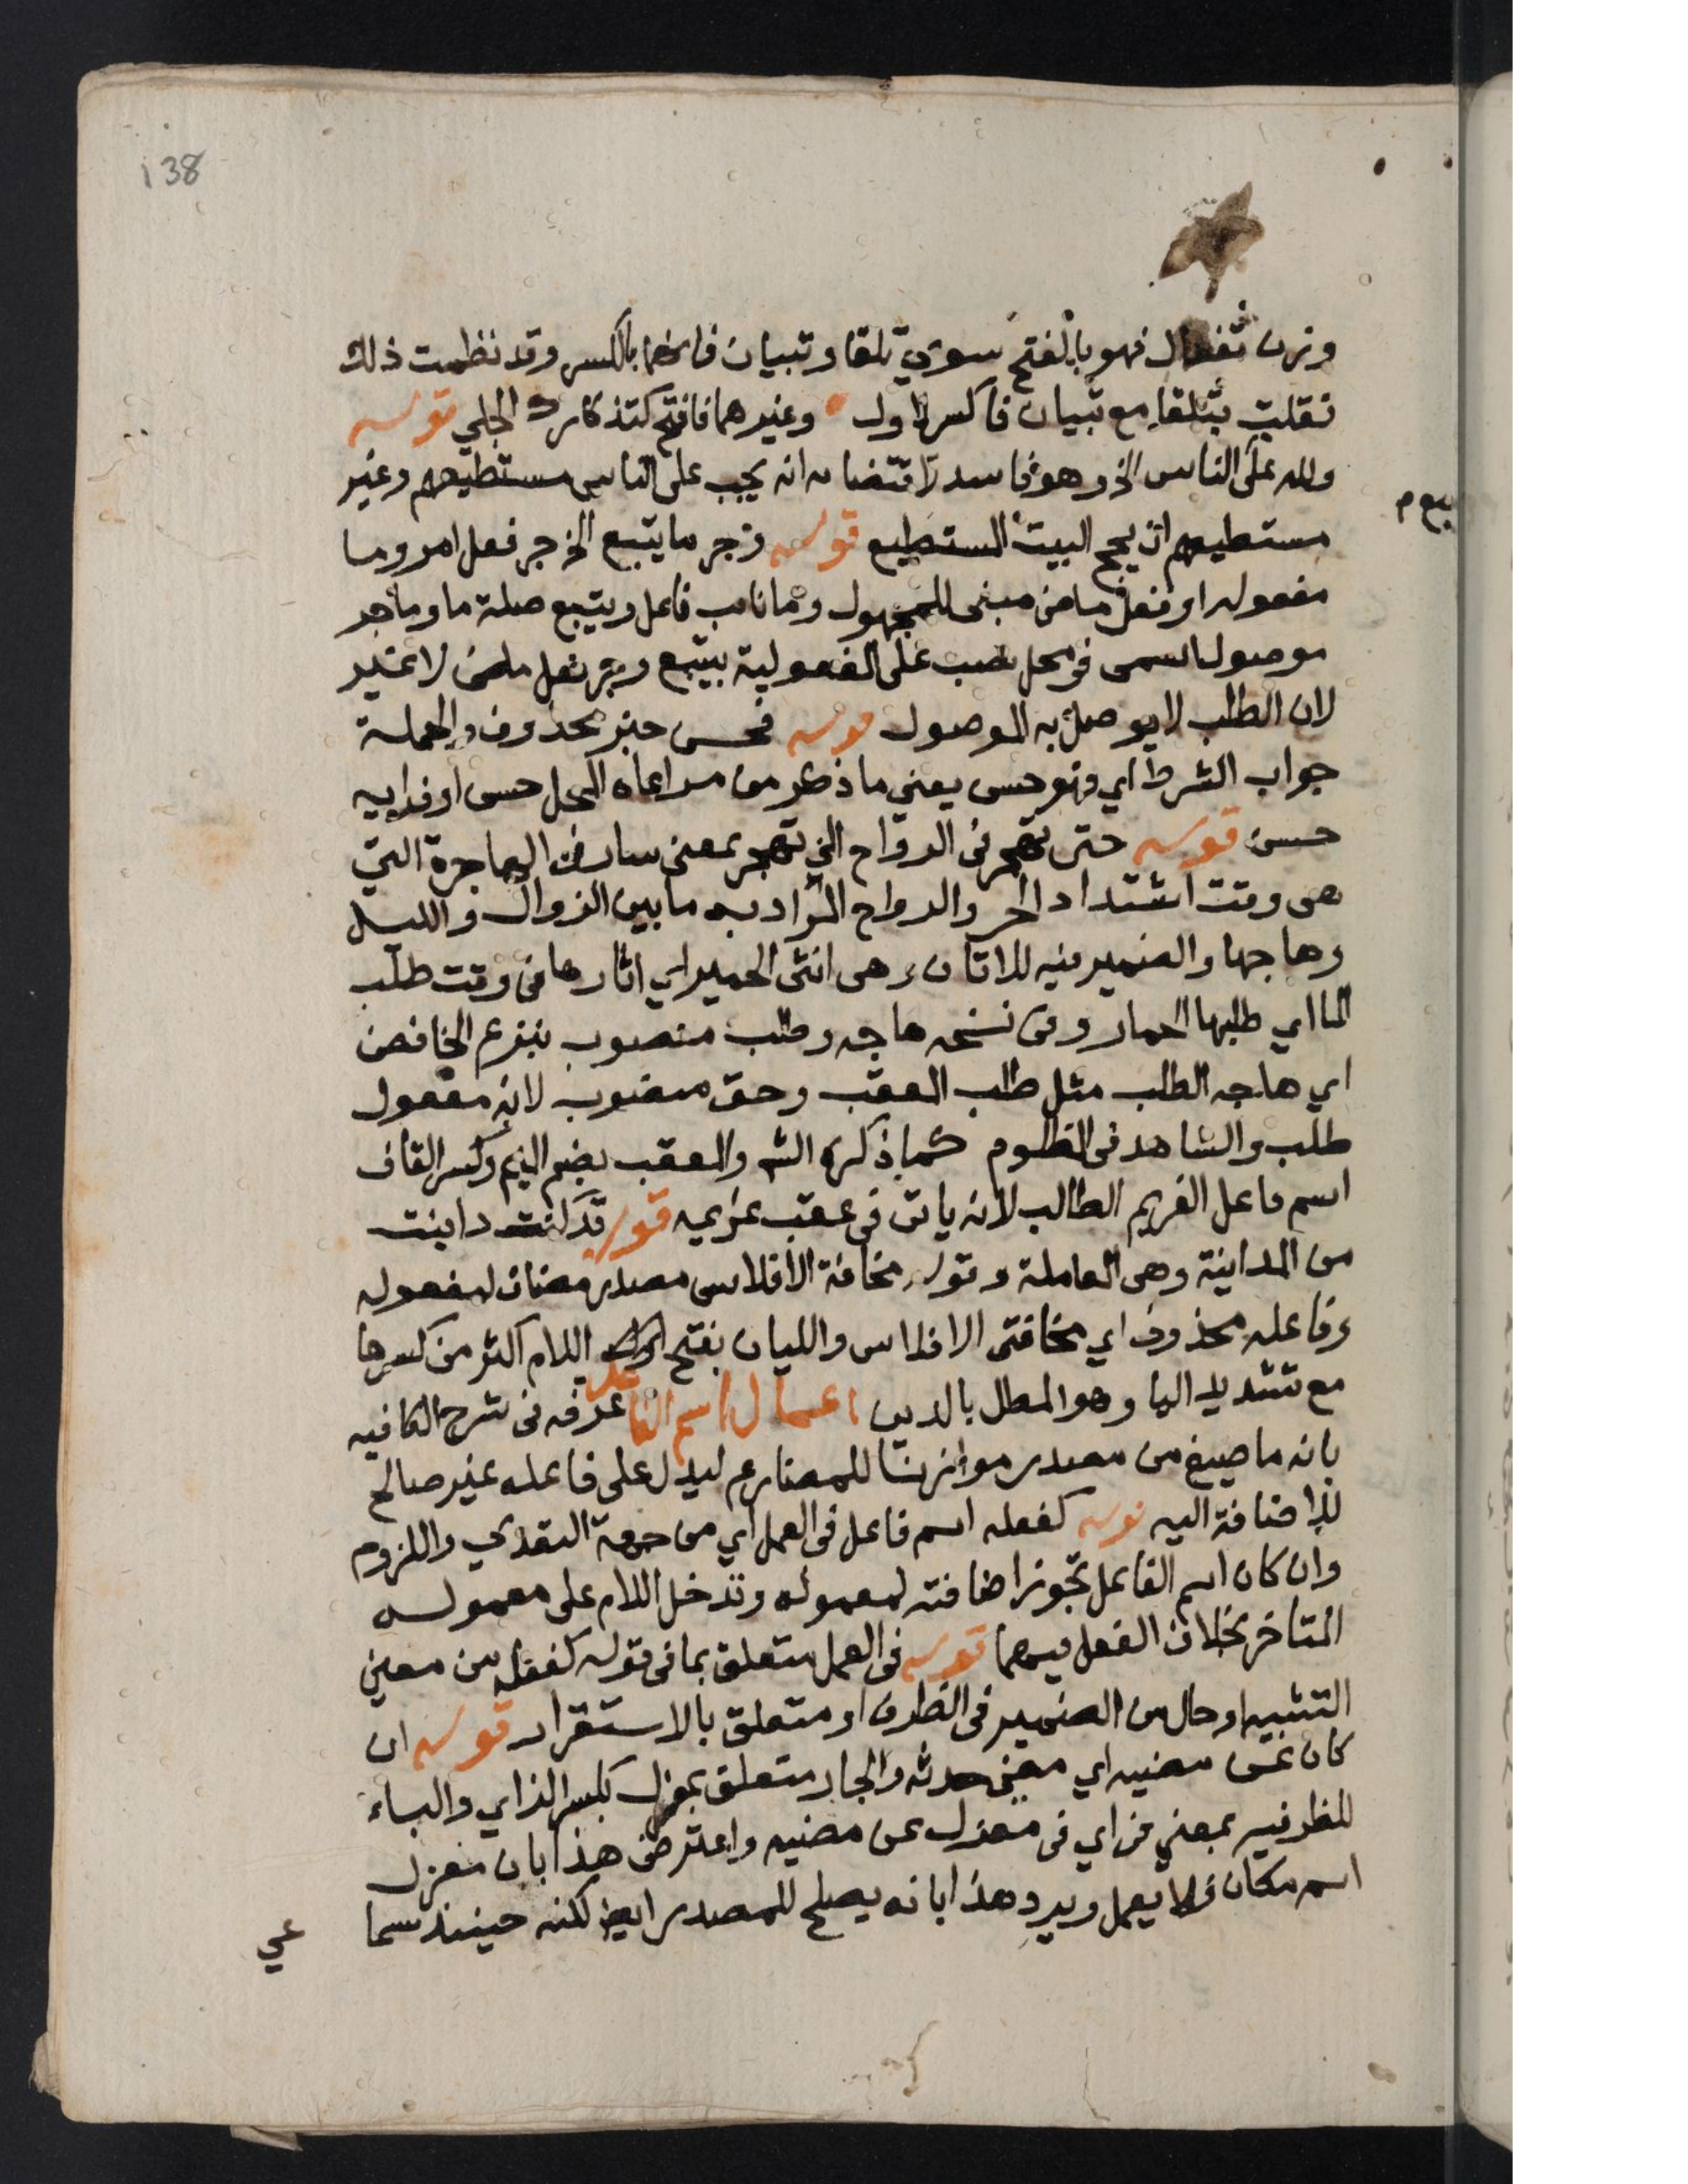 138
وزن تفعال فهو بالفتح سوي تلقا وتبيان فانهما بالكسر وقد نظمت ذلك
فقلت بتلقا مع تبيان فاكسر لاول وغيرهما فافتح كتذكارك الجلي قوله
ولله على الناس الخ وهو فاسد لاقتضائه انه يجب على الناس مستطيعهم وغير
مستطيعهم ان يحج البيت المستطيع قوله وجر ما يتبع الخ جر فعل امر وما
مفعوله او فعل ماض مبني للمجهول وما نايب فاعل ويتبع صلة ما وما جر
موصول اسمى في محل نصب على المفعولية بيتبع وجر فعل ماض لا غير
لان الطلب لا يوصل به الموصول قوله فحسن خبر محذوف والجملة
جواب الشرط اي فهو حسن يعني ما ذكر من مراعاه المحل حسن او فرايه
حسن قوله حتى تهجر في الرواح الخ تهجر بمعنى سار في الهاجرة التي
هي وقت اشتداد الحر والرواح المراد به ما بين الزوال والليل
وهاجها والضمير فيه للاتان وهي انثى الحمير اي اثارها في وقت طلب
الما اي طلبها الحمار وفي نسخه هاجه وطلب منصوب بنزع الخافض
اي هاجه الطلب مثل طلب المعقب وحق منصوب لانه مفعول
طلب والشاهد في المظلوم كما ذكره الش والمعقب بضم الميم وكسر القاف
اسم فاعل الغريم الطالب لانه ياتي في عقب غريمه قوله قد كنت داينت
من المداينة وهي المعاملة وقوله مخافة الافلاس مصدر مضاف لمفعوله
وفاعله محذوف اي مخافتي الافلاس والليان بفتح اللام اكثر من كسرها
مع تشديد اليا وهو المطل بالدين اعمال اسم الفاعل عرفه في شرح الكافيه
بانه ما صيغ من مصدر موازنا للمضارع ليدل على فاعله غير صالح
للاضافة اليه قوله كفعله اسم فاعل في العمل اي من جهة التعدي واللزوم
وان كان اسم الفاعل تجوز اضافته لمعموله وتدخل اللام على معموله
المتاخر بخلاف الفعل فيهما قوله في العمل متعلق بما في قوله كفعله من معني
التشبيه او حال من الضمير في الظرف او متعلق بالاستقرار قوله ان
كان عن مضيه اي مضي حدثه والجار متعلق بمعزل بكسر الزاي والباء
للظرفيه بمعني في اي في معزل عن مضيه واعترض هذا بان معزل
اسم مكان فلا يعمل ويرد هذا بانه يصلح للمصدر ايض لكنه حينئذ سما
عي